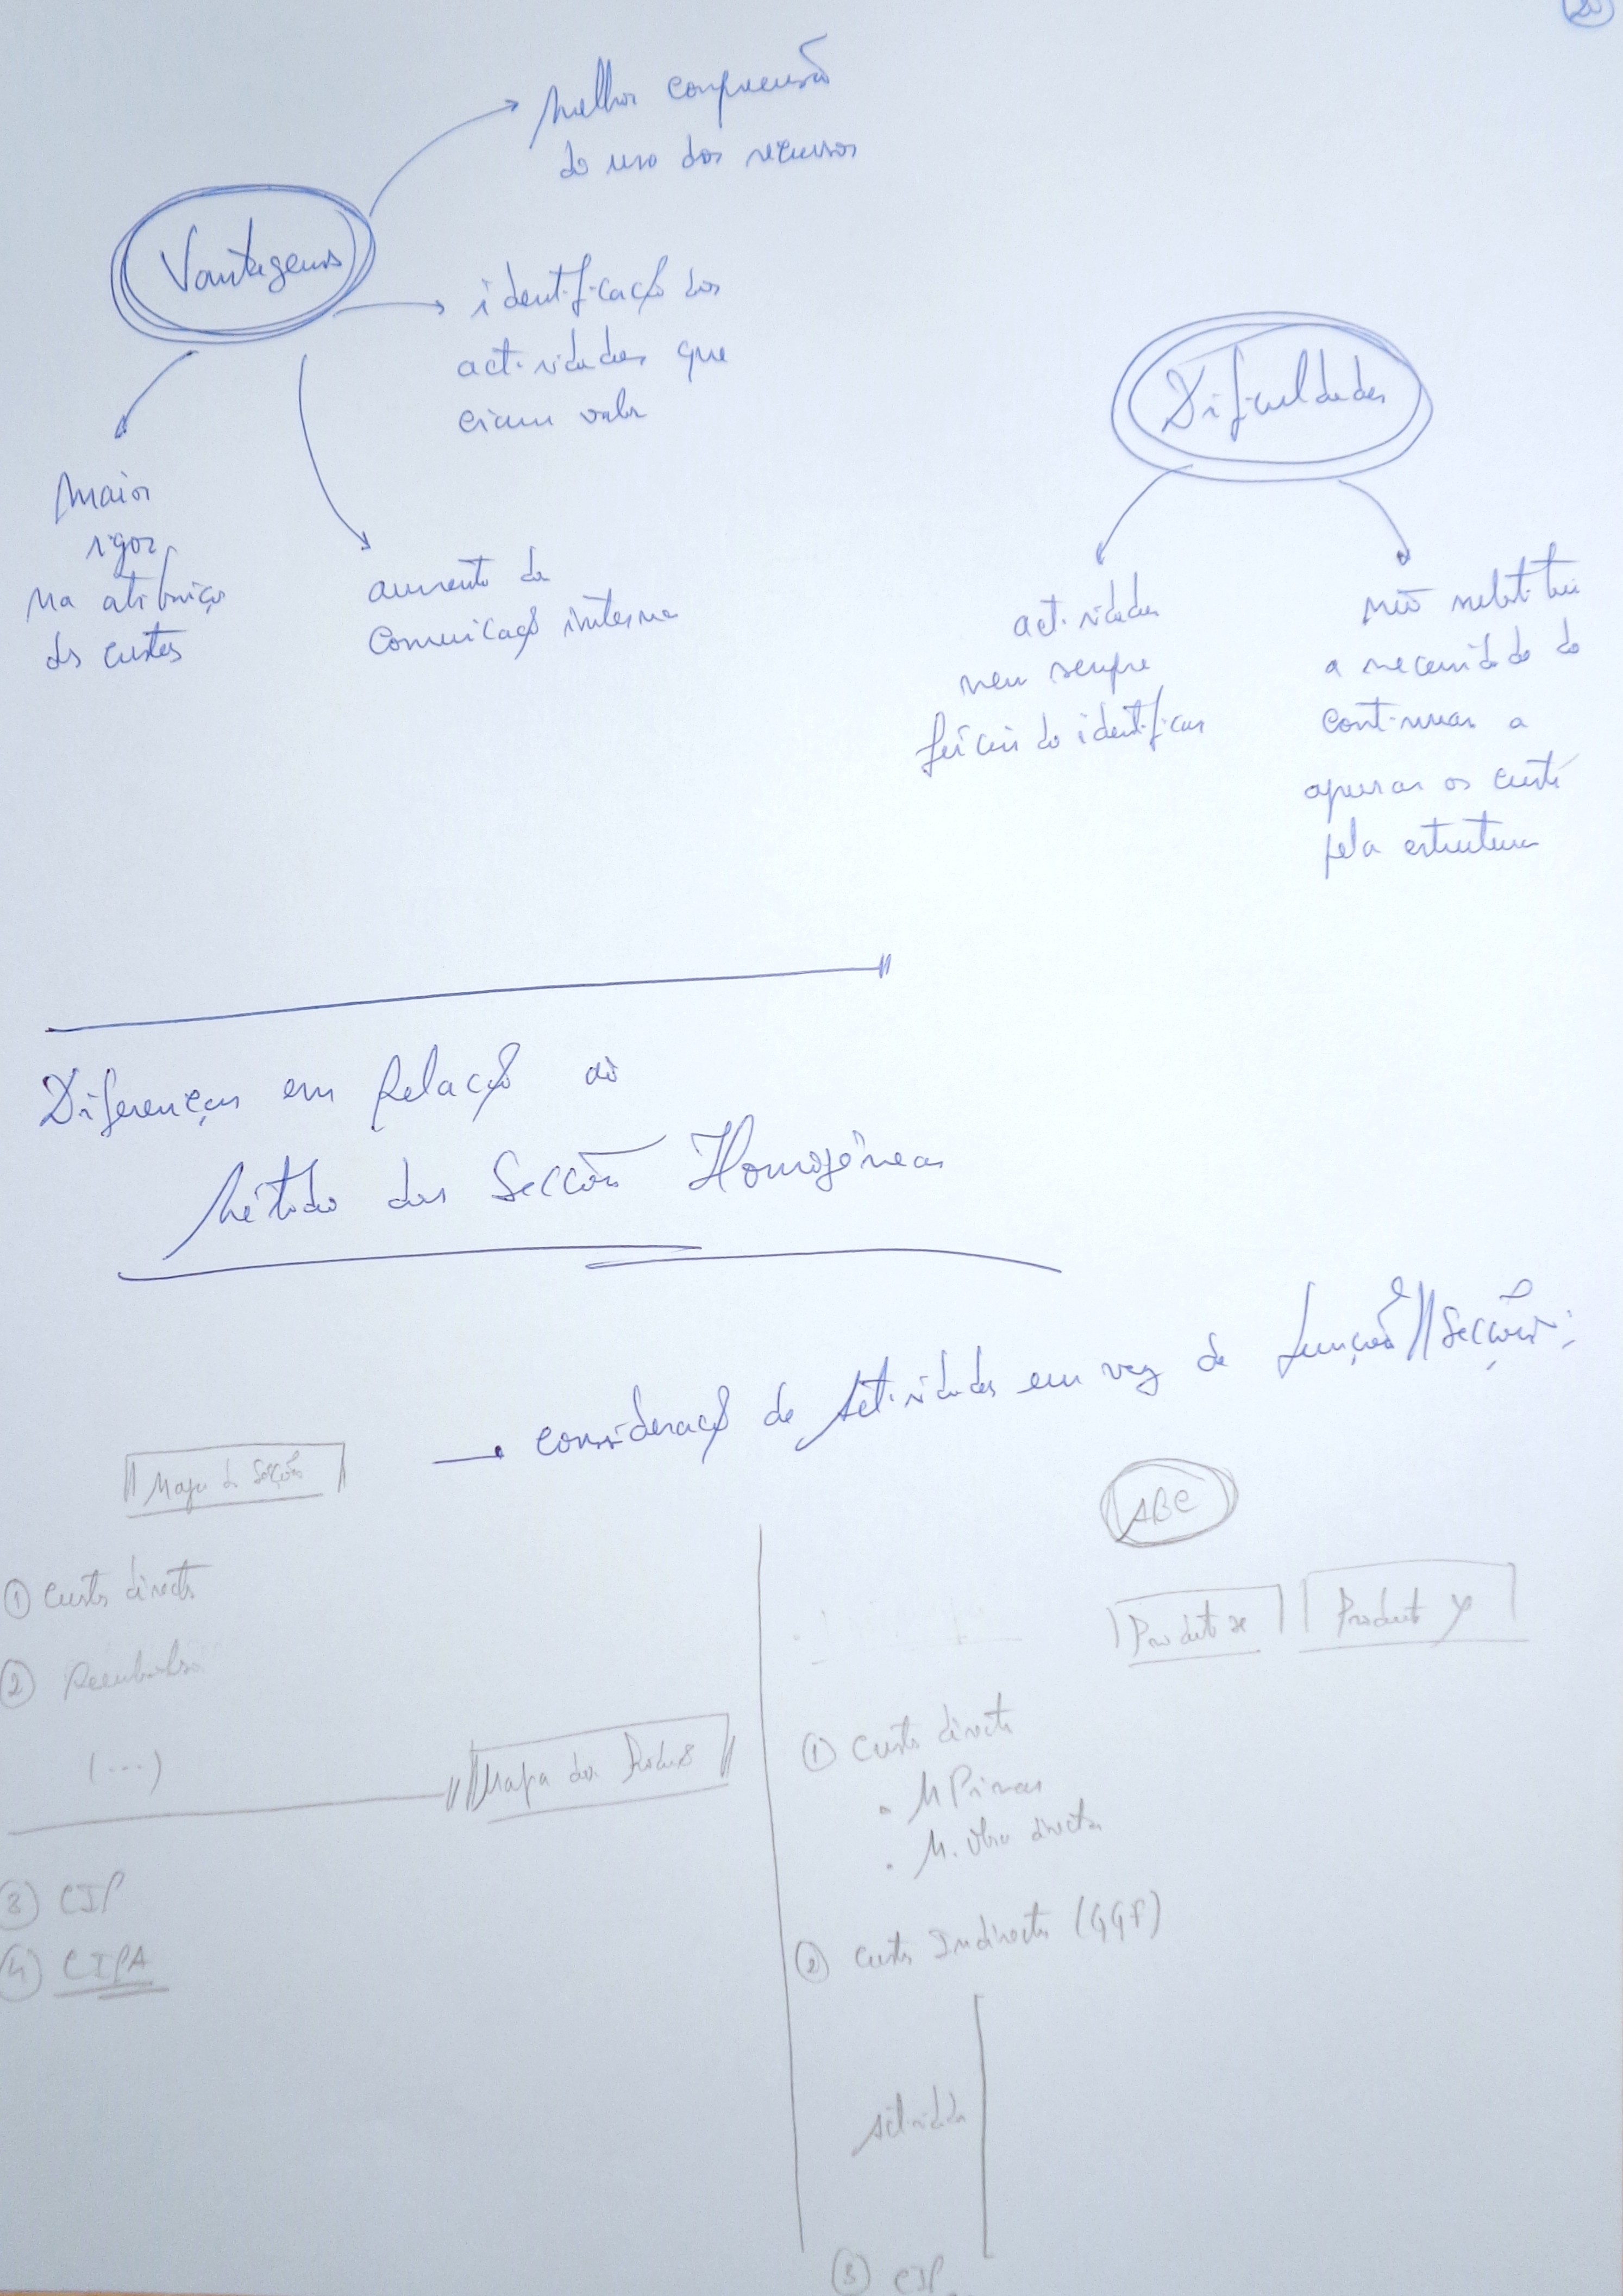 20
Melhor compreensão
do uso dos recursos
Vantagens
identificação das
actividades que
criam valor
Maior
rigor
na atribuição
dos custos
aumento da
comunicação interna
Dificuldades
actividades
nem sempre
fáceis de identificar
não substitui
a necessidade de
continuar a
apurar os custos
pela estrutura
Diferenças em Relação ao
Método das Secções Homogéneas
→ consideração de Actividades em vez de Funções // Secções;
Mapa de Secções
① Custos directos
② Reembolsos
(...)
Mapa dos
③ CIP
④ CIPA
ABC
Produto x
Produto y
① Custos directos
• M Primas
• M. Obra directa
② Custos Indirectos (GGF)
Actividades
③ CIP